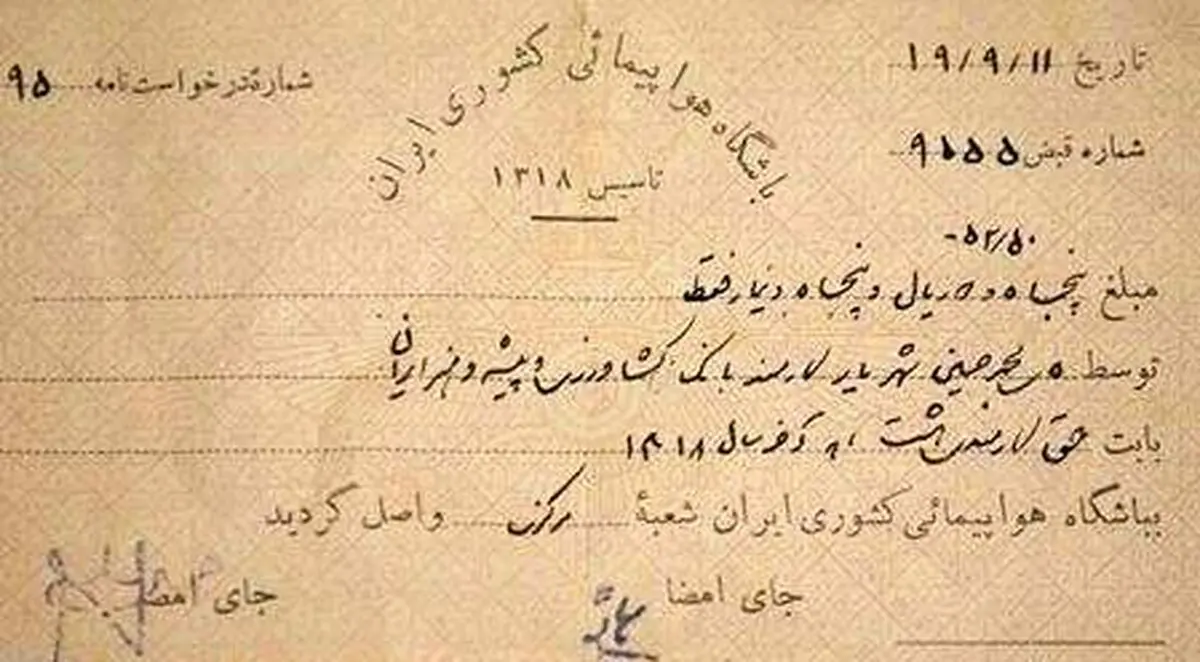 باشگاه هواپیمائی کشوری ایران
تاسیس ۱۳۱۸
تاریخ ۱۹/۹/۱۱
شماره درخواست نامه ۹۵
شماره قبض ۹۱۵۵
۵۲/۵۰-
مبلغ پنجاه و دو ریال و پنجاه دینار فقط
توسط شهریار کارمند بانک کشاورزی و پیشه و هنر ایران
بابت حق کارمندی هشت ماهه آخر سال ۱۳۱۸
بباشگاه هواپیمائی کشوری ایران شعبهٔ مرکزی واصل گردید
جای امضا
جای امضا